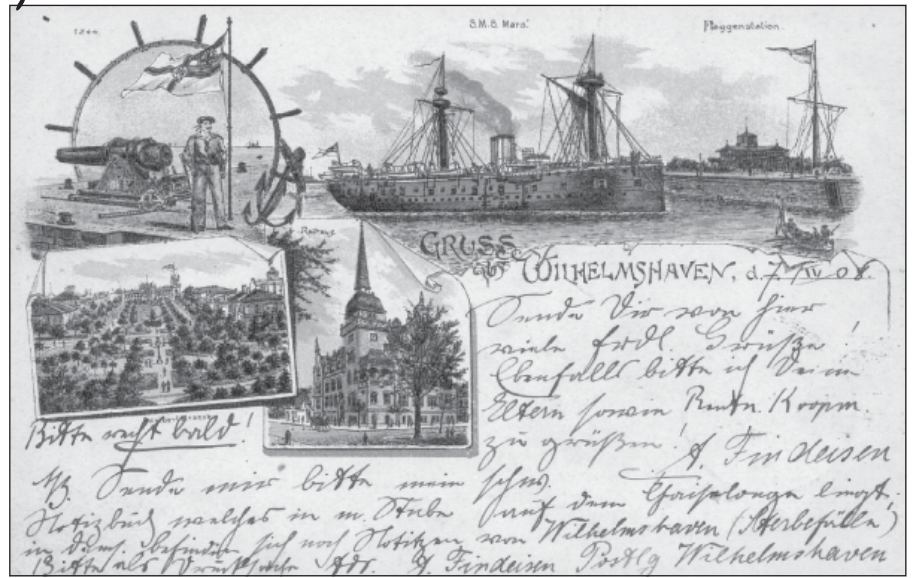 1844.
S.M.S. Mars.
Flaggenstation.
Rathaus
GRUSS
aus WILHELMSHAVEN, d. 7/IV 01.
Sende Dir von hier
viele frdl. Grüße!
Ebenfalls bitte ich Deine
Eltern sowie Rentn. Koopm.
zu grüßen!
A. Findeisen
Bitte recht bald!
Sende mir bitte mein schw.
Notizbuch welches in m. Stube auf dem Chaiselongue liegt.
in dems. befinden sich noch Notizen von Wilhelmshaven (Sterbefälle)
Bitte als Drucksache Adr. A. Findeisen Postlg Wilhelmshaven